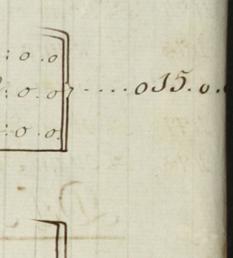 : o .o
: o .o .... o15.o.
: o .o.